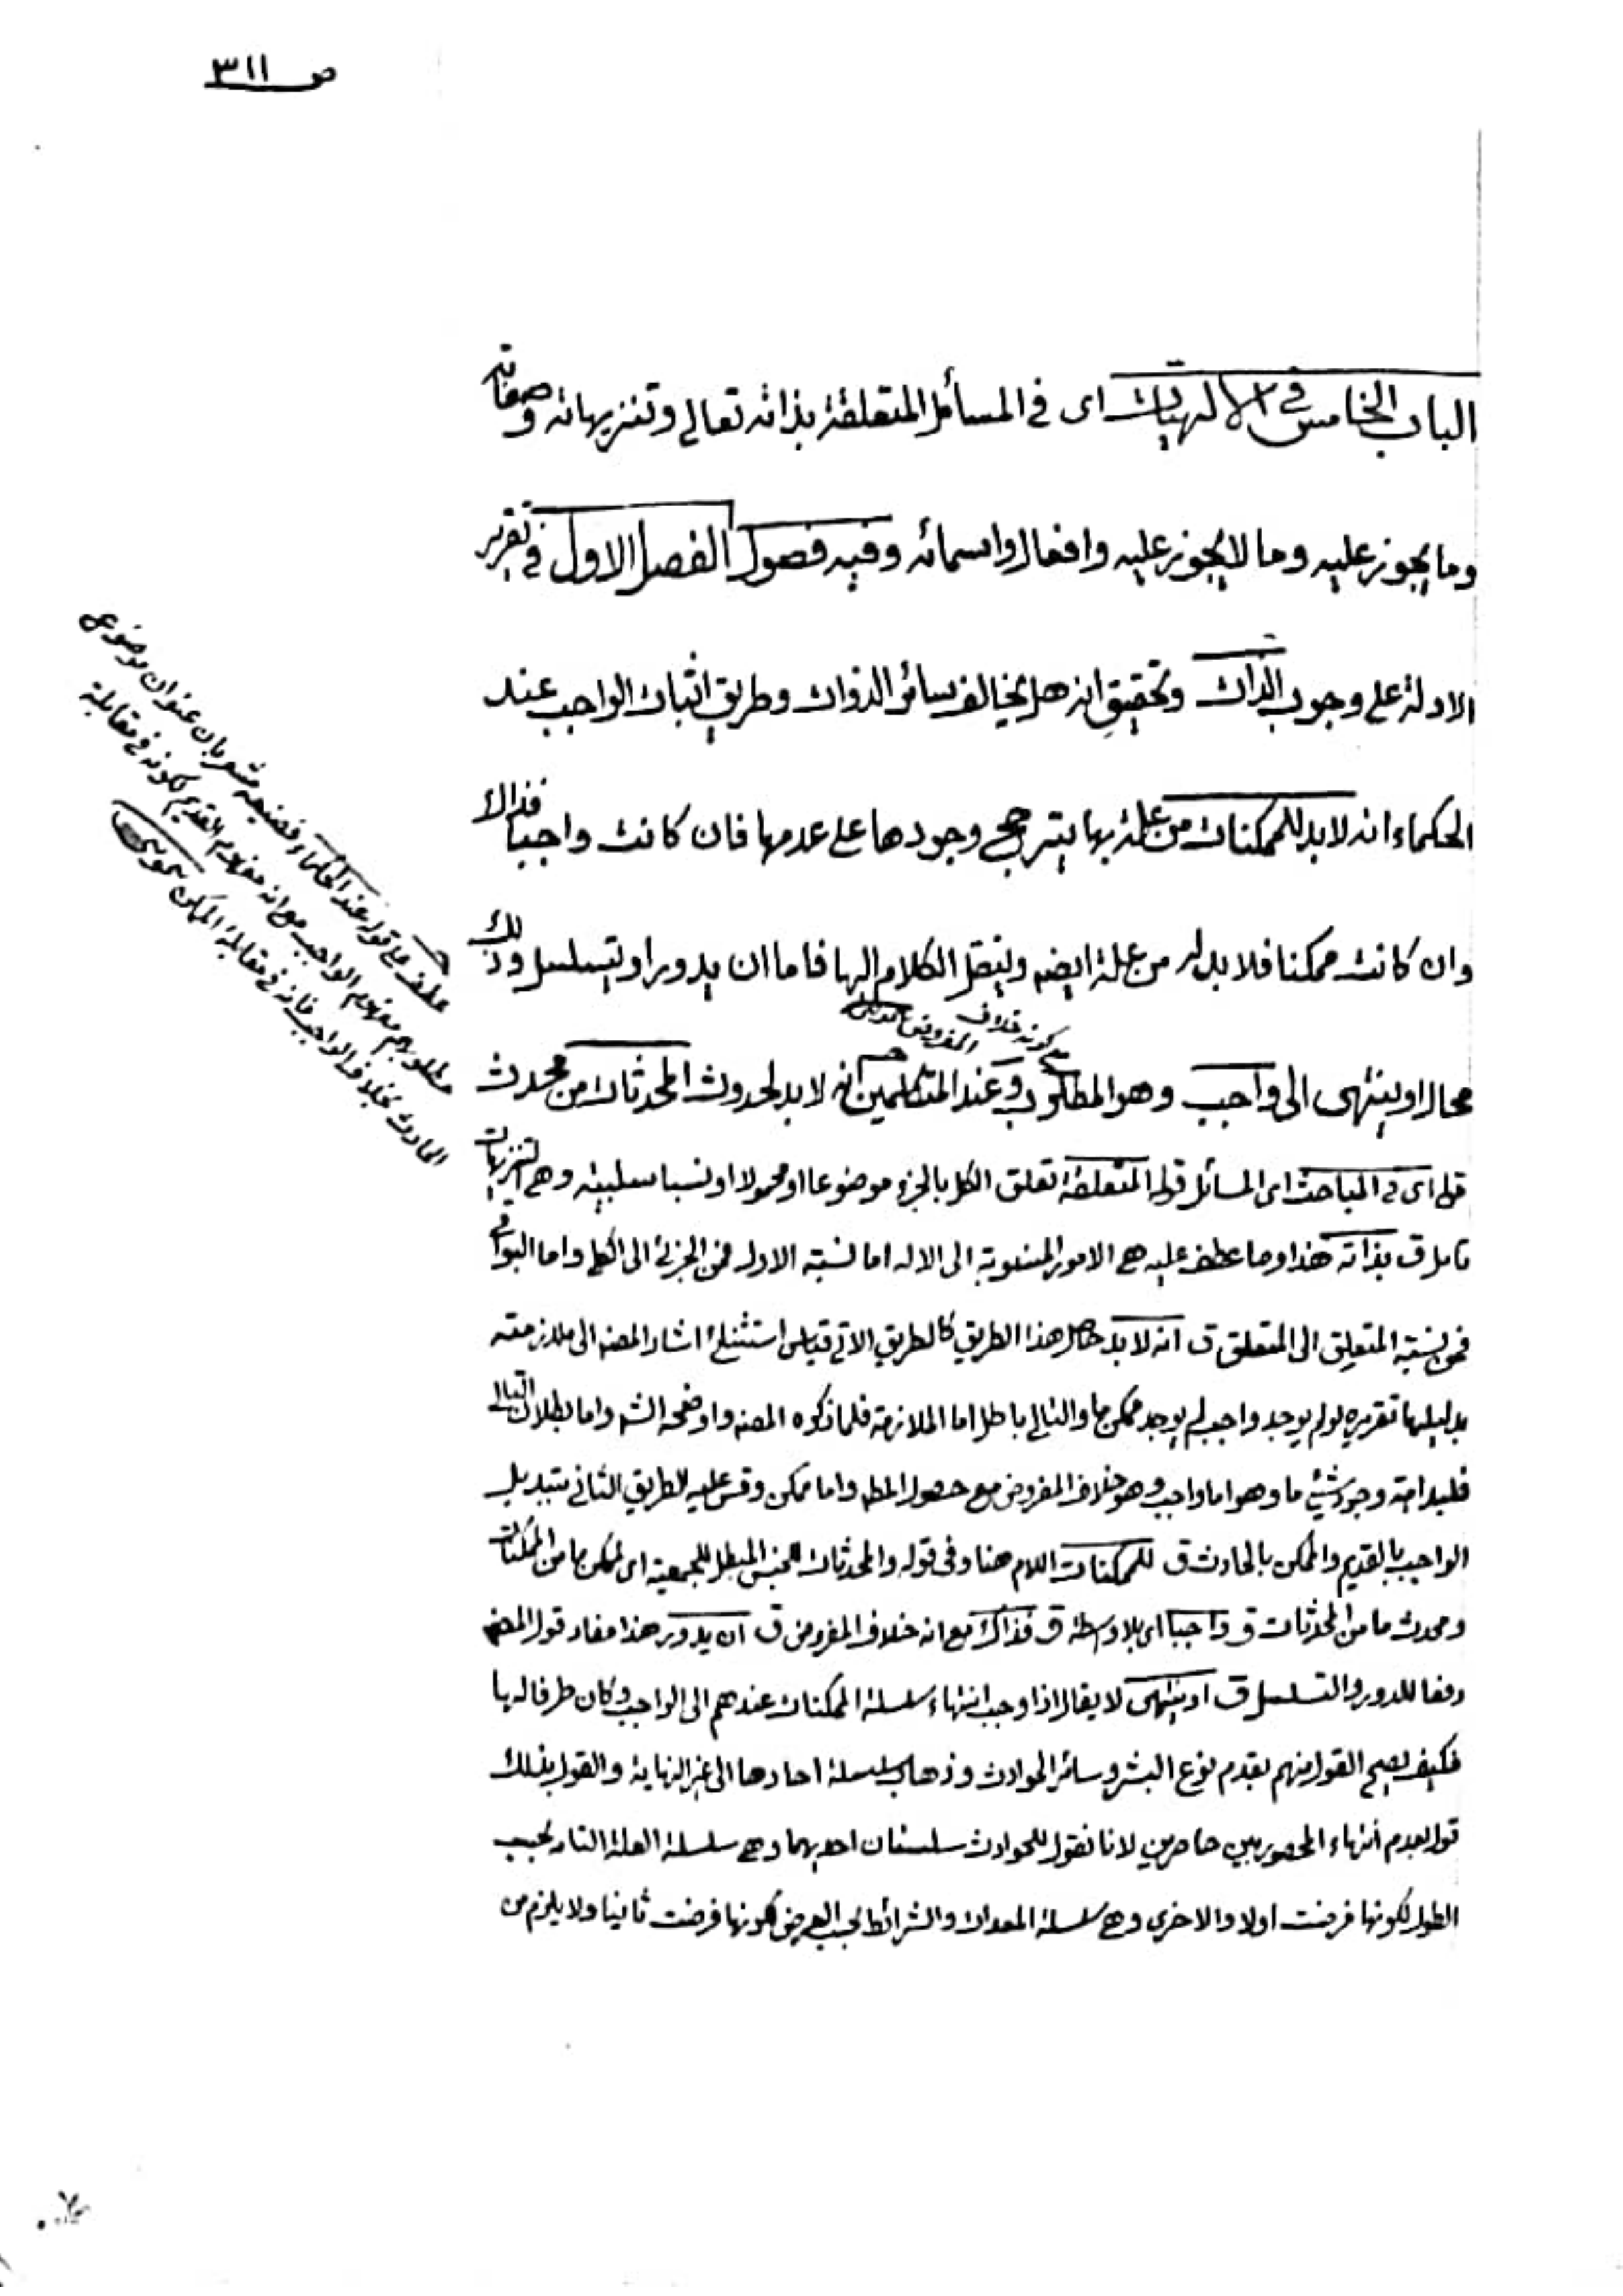 ص ٣١١
الباب الخامس في الالهيات اى في المسائل المتعلقة بذاته تعالى وتنزيهاته وصفاته
وما يجوز عليه وما لا يجوز عليه وافعاله واسمائه وفيه فصول الفصل الاول في تقرير
الادلة على وجوب الذات وتحقيق انه هل يخالف سائر الذوات وطريق اثبات الواجب عند
الحكماء انه لا بد للممكنات من علة بها يترجح وجودها على عدمها فان كانت واجبا فذاك
وان كانت ممكنا فلا بد له من علة ايضه وينقل الكلام اليها فاما ان يدور او يتسلسل وذلك
مع كونه خلاف
المفروض
محال او ينتهى الى واجب وهو المطلوب وعند المتكلمين انه لا بد لحدوث المحدثات من محدث
عطف على قوله عند الحكماء وفضيعه مشعر بان عنوان موضوعى
مطلوبهم مفهوم الواجب مع انه مفهوم القديم لكونه في مقابلة
الحادث بخلاف الواجب فانه في مقابلة الممكن
قوله اى في المباحث اى المسائل قوله المتعلقة تعلق الكل بالجزء موضوعا او محمولا او نسبا سلبيته وهى التنزيهات
تامل ق بذاته هذا وما عطف عليه هى الامور المنسوبة الى الاله اما نسبة الاول فمن الجزئ الى الكلى واما البواقى
فمن نسبة المتعلق الى المتعلق ق انه لا بد حاصل هذا الطريق كالطريق الاتى قياس استثنائى اشار المصنه الى ملازمته
بدليلها تقريره لو لم يوجد واجب لم يوجد ممكن ما والتالى باطل اما الملازمة فلما ذكره المصنه واوضحه الشه واما بطلان التالى
فلبداهة وجود شئ ما وهو اما واجب وهو خلاف المفروض مع حصول المطه واما ممكن وقس عليه الطريق الثانى بتبديل
الواجب بالقديم والممكن بالحادث ق للممكنات اللام هنا وفى قوله والمحدثات للجنس المبطل للجمعية اى لممكن ما من الممكنات
ومحدث ما من المحدثات ق واجبا اى بلا واسطة ق فذاك مع انه خلاف المفروض ق ان يدور هذا مفاد قول المصنه
دفعا للدور والتسلسل ق او ينتهى لا يقال اذا وجب انتهاء سلسلة الممكنات عندهم الى الواجب وكان طرفا لها
فكيف يصح القول منهم بقدم نوع البشر وسائر الحوادث وذهاب سلسلة احادها الى غير النهاية والقول بذلك
قول بعدم انتهاء المحصور بين حاصرين لانا نقول للحوادث سلسلتان احديهما وهى سلسلة العلة التامة بحسب
الطول لكونها فرضت اولا والاخرى وهى سلسلة المعدات والشرائط بحسب العرض لكونها فرضت ثانيا ولا يلزم من